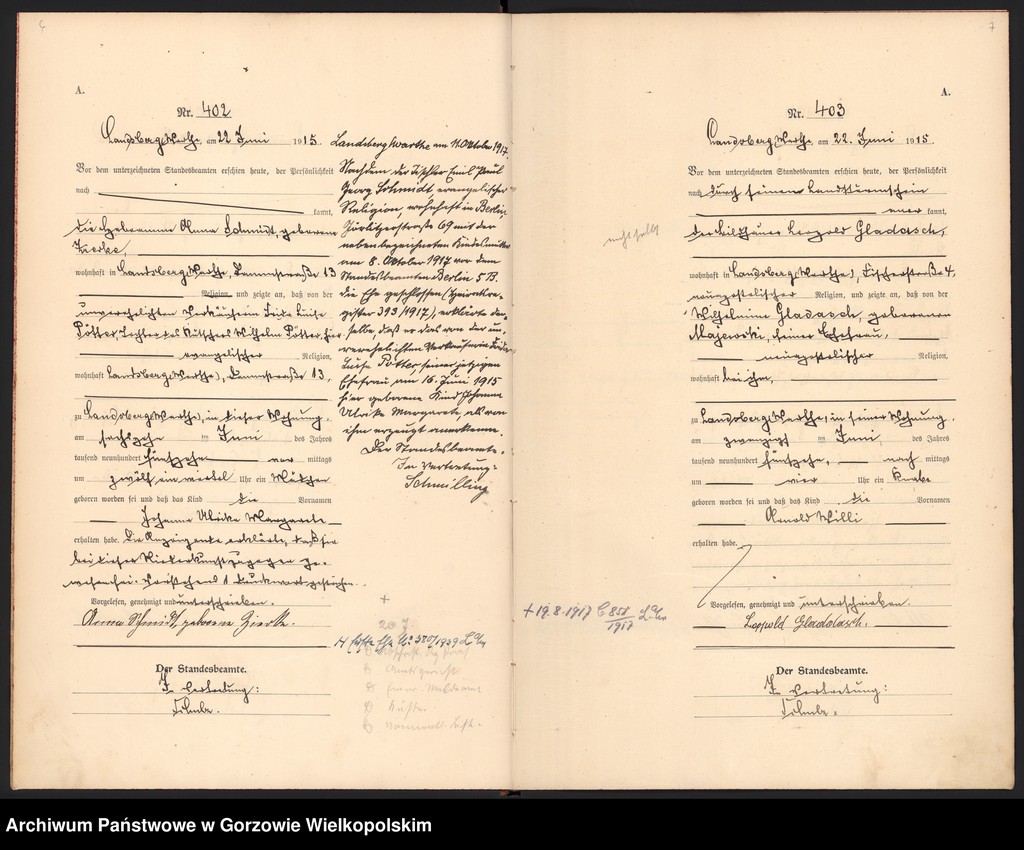 A.
Nr. 402
Landsberg Warthe, am 22 Juni 1915.
Vor dem unterzeichneten Standesbeamten erschien heute, der Persönlichkeit
nach
kannt,
die Hebamme Anna Schmidt, geborene
Zierke,
wohnhaft in Landsberg (Warthe), Dammstraße 13
Religion, und zeigte an, daß von der
unverehelichten Verkäuferin Frida Luise
Pötter, Tochter des Kutschers Wilhelm Pötter, hier
evangelischer Religion,
wohnhaft Landsberg (Warthe), Dammstraße 13,
zu Landsberg (Warthe), in dieser Wohnung,
am sechszehn im Juni des Jahres
tausend neunhundert fünfzehn vor mittags
um zwölf ein viertel Uhr ein Mädchen
geboren worden sei und daß das Kind die Vornamen
Johanna Ulrike Margarete
erhalten habe. Die Anzeigende erklärte, daß sie
bei dieser Niederkunft zugegen ge-
wesen sei. Vorstehend 1 Druckwort gestrichen.
Vorgelesen, genehmigt und unterschrieben.
Anna Schmidt, geborene Zierke.
Der Standesbeamte.
In Vertretung:
Landsberg Warthe am 11. Oktober 1917.
Nachdem der Tischler Emil Paul
Georg Schmidt evangelischer
Religion, wohnhaft in Berlin
Görlitzerstraße 69 mit der
nebenbezeichneten Kindesmutter
am 8. Oktober 1917 vor dem
Standesbeamten Berlin 5 B.
die Ehe geschlossen (Heiratsre-
gister 393/1917), erklärte der-
selbe, daß er das von der un-
verehelichten Verkäuferin Frida
Luise Pötter seiner jetzigen
Ehefrau am 16. Juni 1915
hier geborene Kind Johanna
Ulrike Margarete als von
ihm erzeugt anerkenne.
Der Standesbeamte.
In Vertretung:
Schmilling
A.
Nr. 403
Landsberg Warthe, am 22. Juni 1915.
Vor dem unterzeichneten Standesbeamten erschien heute, der Persönlichkeit
nach durch seinen Landsturmschein
aner kannt,
der Bildhauer Leopold Gladasch,
wohnhaft in Landsberg (Warthe), Fischerstraße 4,
neuapostolischer Religion, und zeigte an, daß von der
Wilhelmine Gladasch, geborenen
Majewski, seiner Ehefrau,
neuapostolischer Religion,
wohnhaft bei ihm,
zu Landsberg (Warthe), in seiner Wohnung,
am zwanzigsten im Juni des Jahres
tausend neunhundert fünfzehn, nach mittags
um vier Uhr ein Knabe
geboren worden sei und daß das Kind die Vornamen
Arnold Willi
erhalten habe.
Vorgelesen, genehmigt und unterschrieben
Leopold Gladdasch.
Der Standesbeamte.
In Vertretung:
+ 19.8.1917 C 851/1917
Archiwum Państwowe w Gorzowie Wielkopolskim